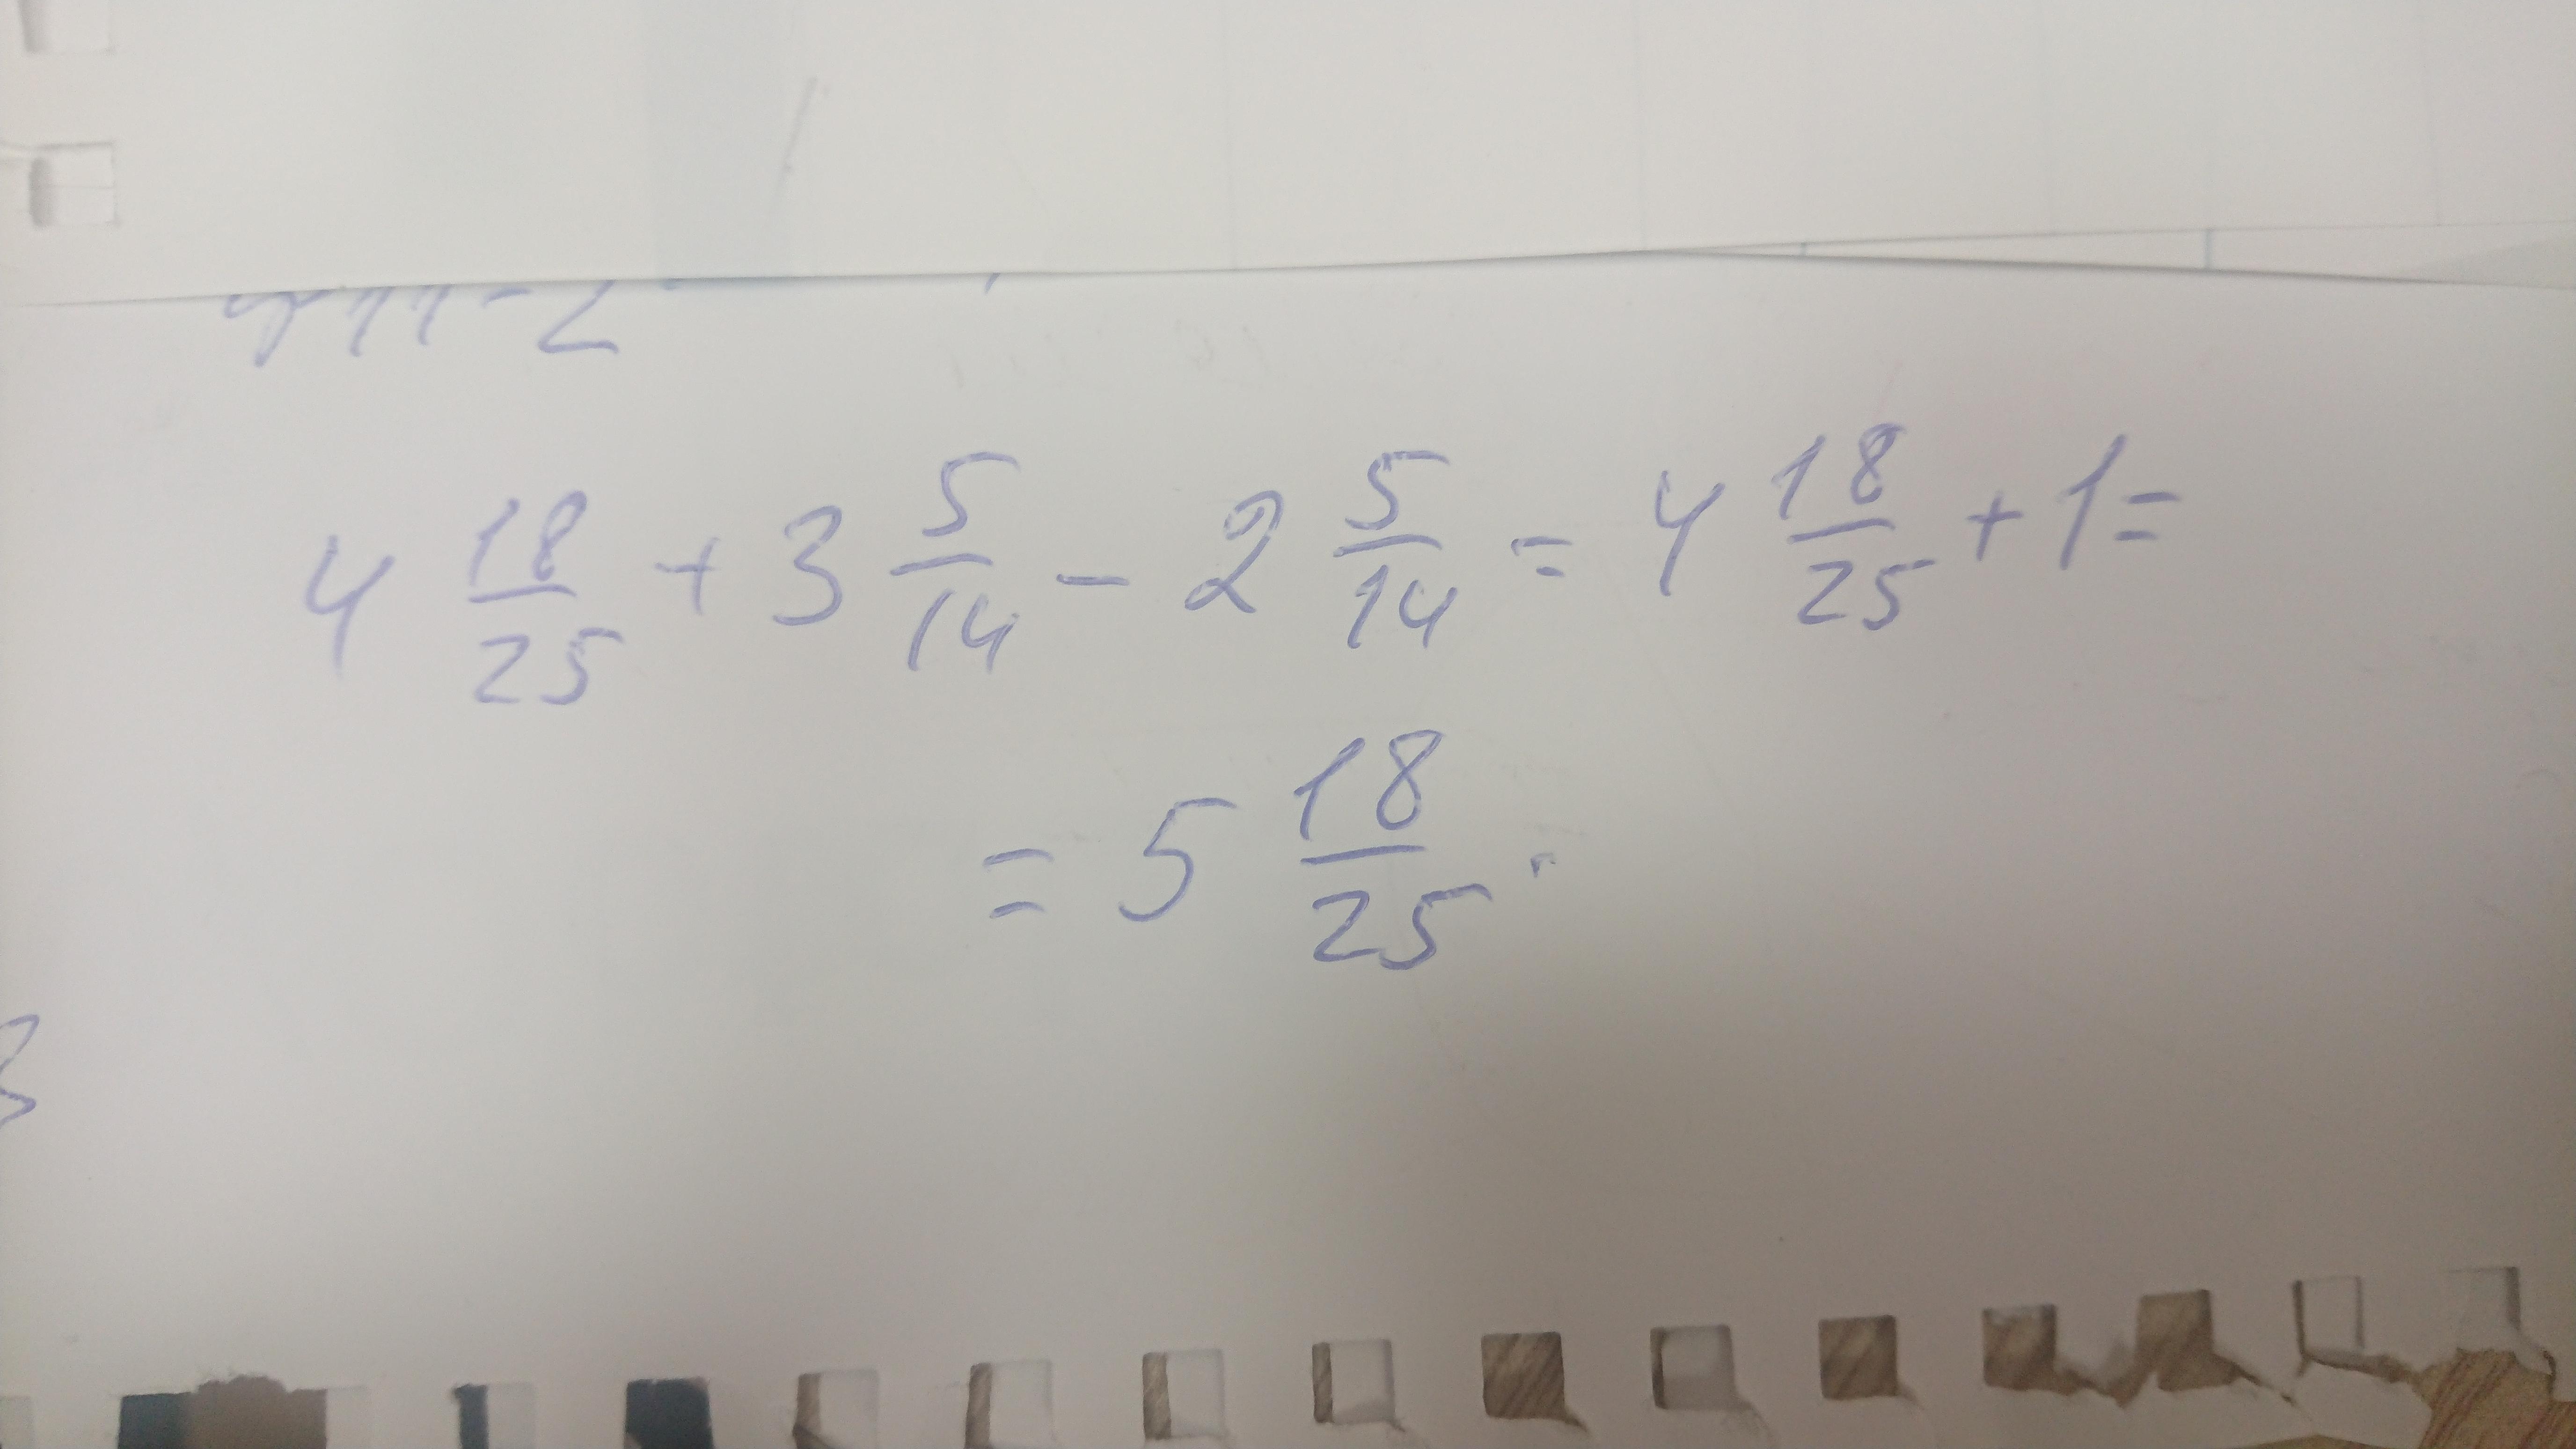 4 18/25 + 3 5/14 - 2 5/14 = 4 18/25 + 1 =
= 5 18/25 .
3